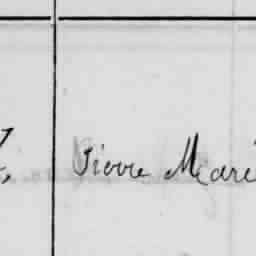 Pierre Mari